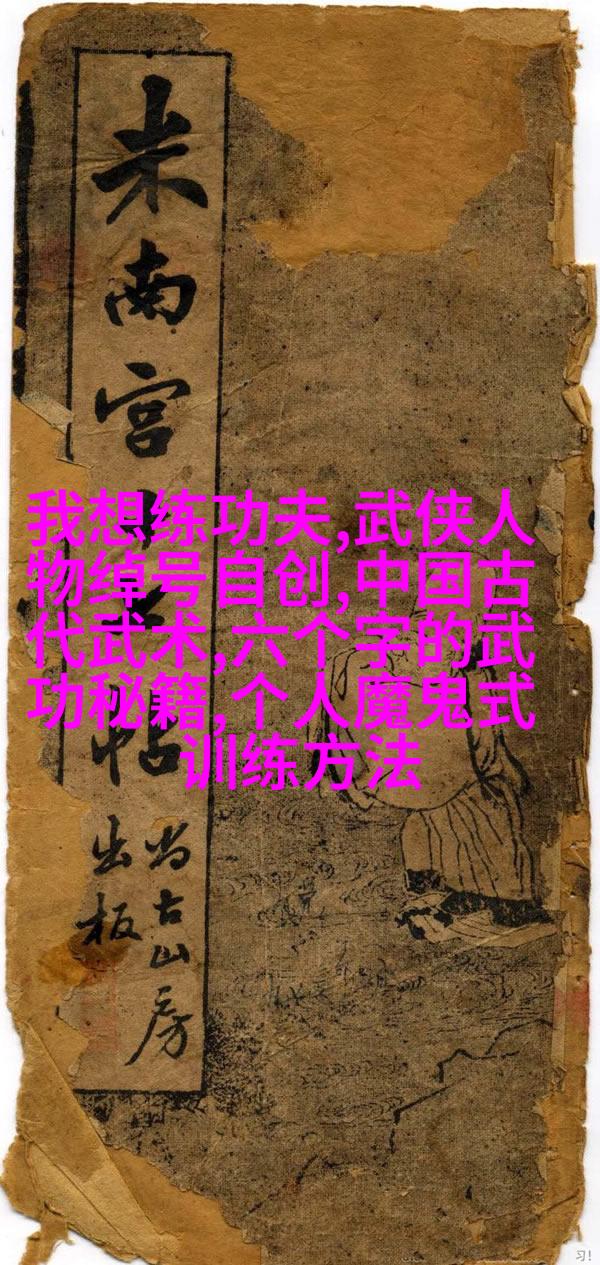 米南宮
帖
尚古山房
出板
我想练功夫,武侠人
物绰号自创,中国古
代武术,六个字的武
功秘籍,个人魔鬼式
训练方法
习!